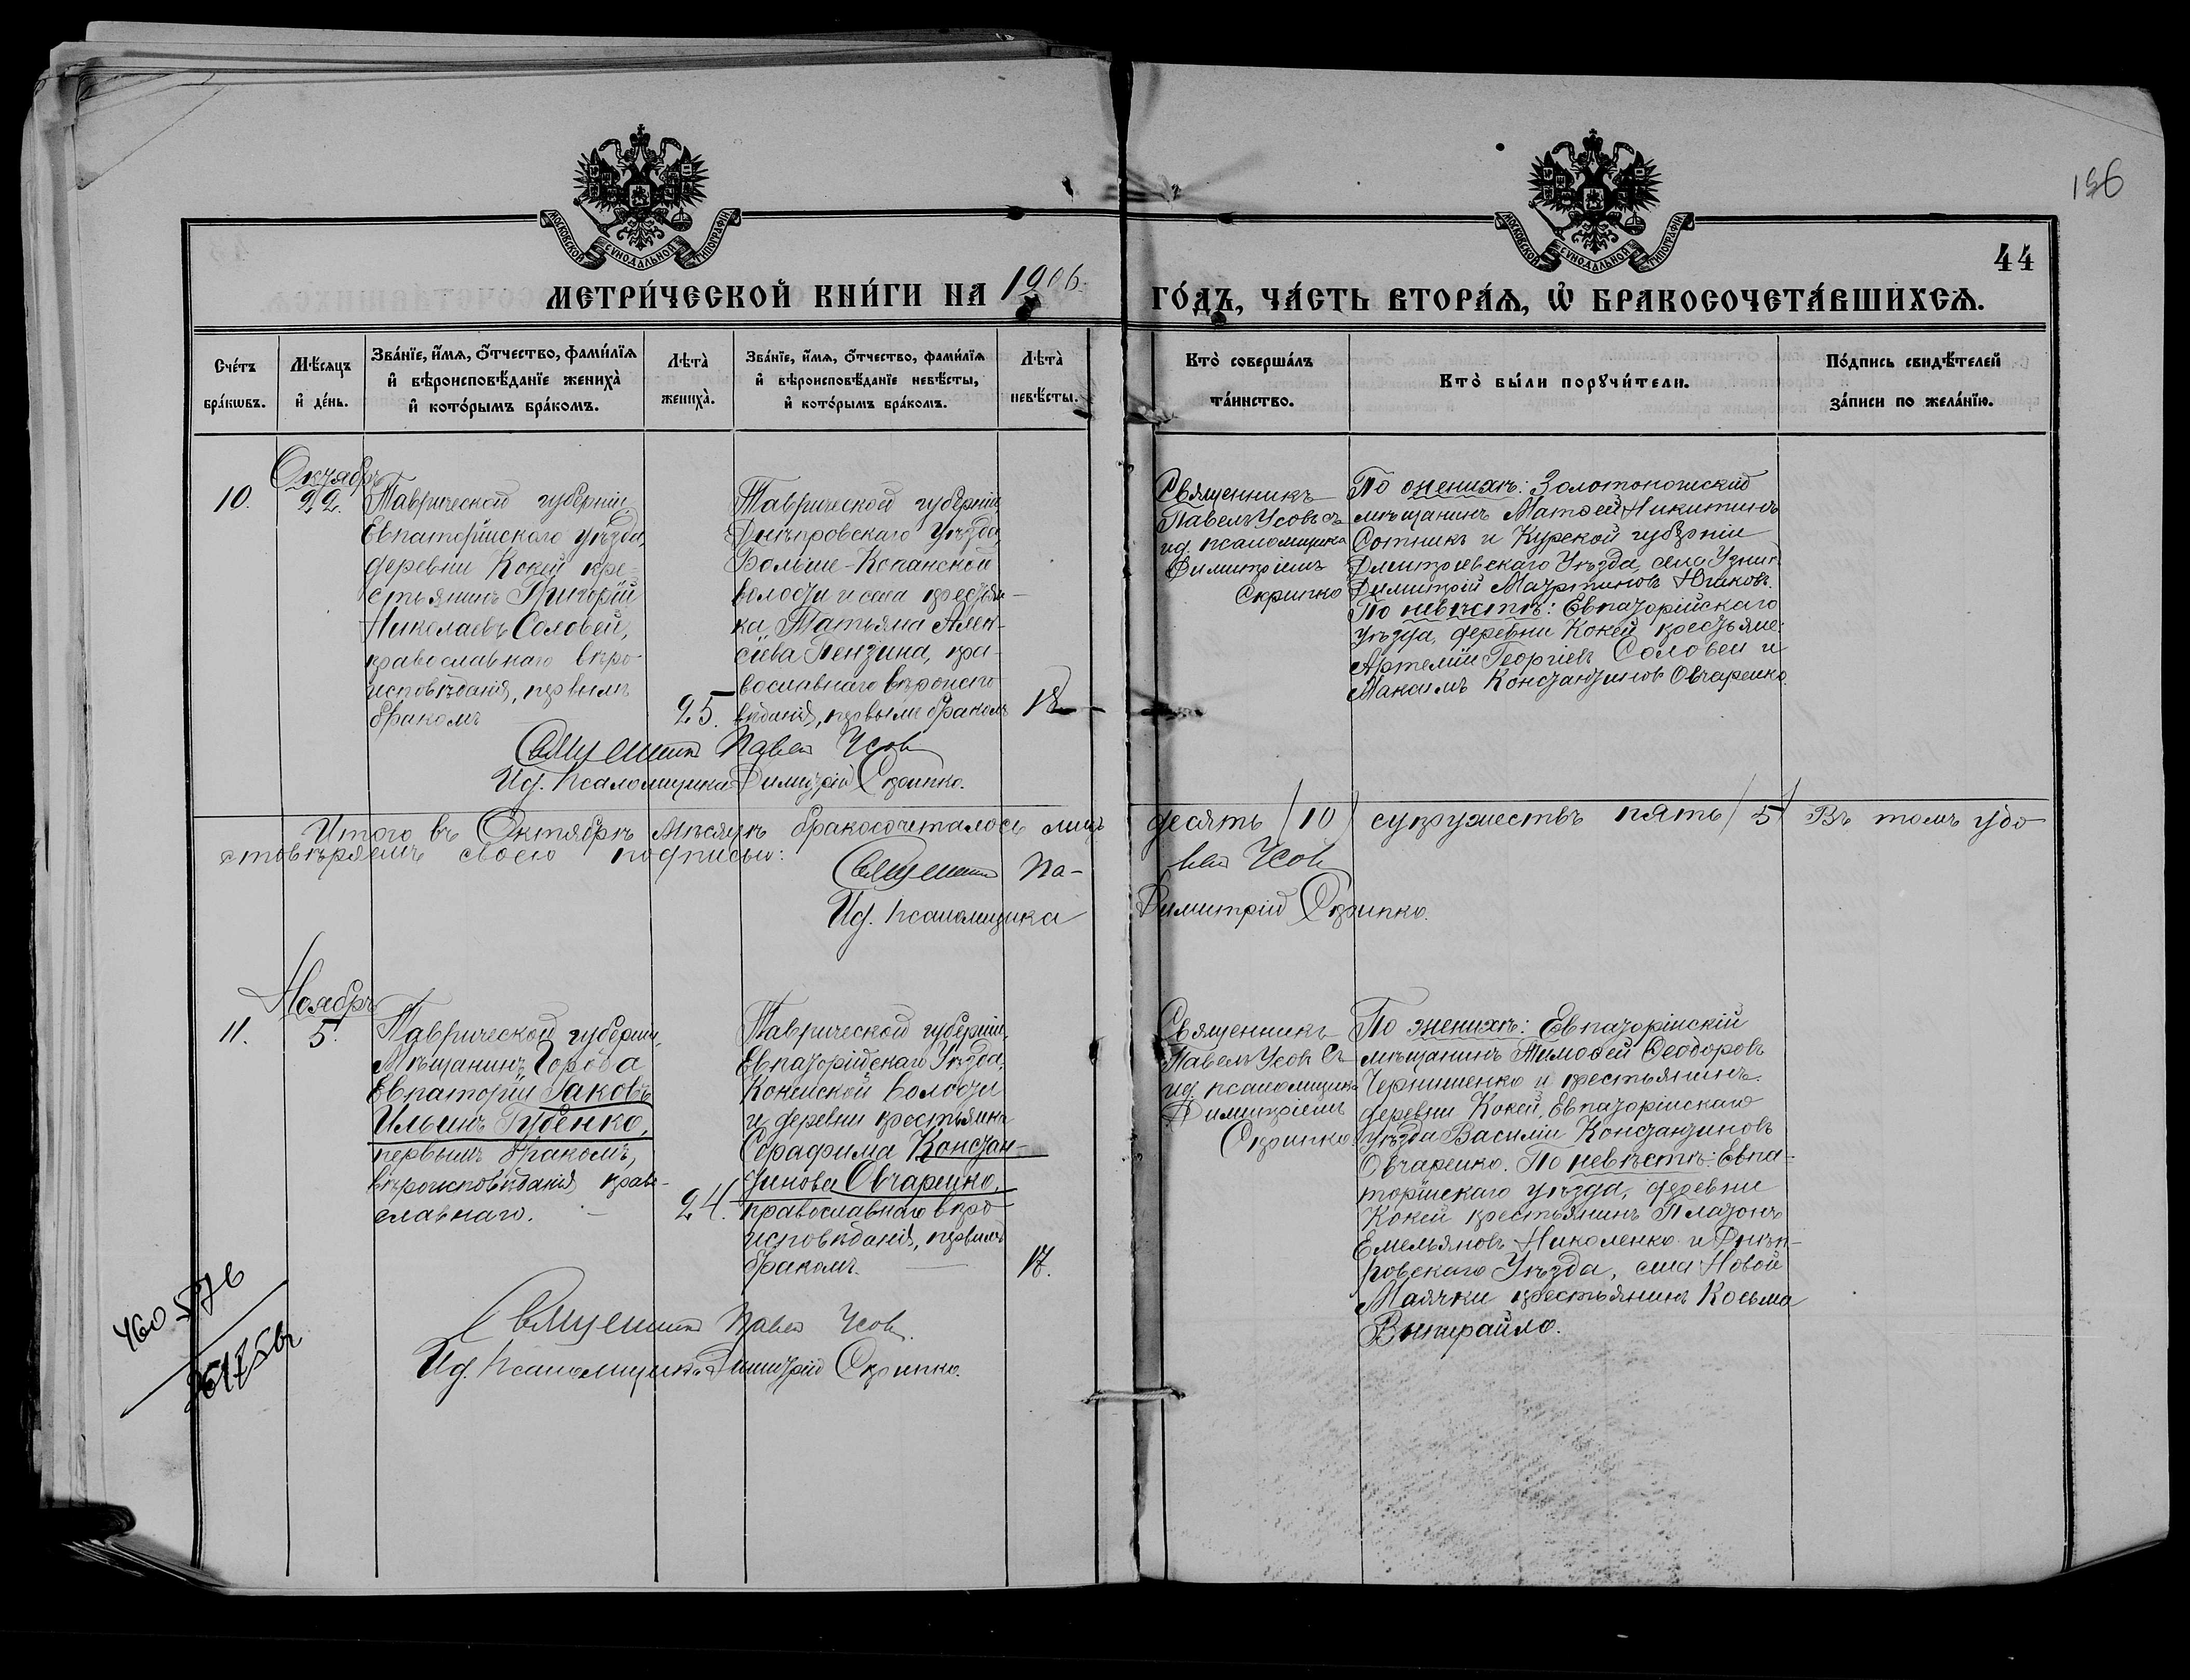 156
44
МОСКОВСКОЙ СУНОДАЛЬНОЙ ТИПОГРАФІИ
МОСКОВСКОЙ СУНОДАЛЬНОЙ ТИПОГРАФІИ
МЕТРИ́ЧЕСКОЙ КНИ́ГИ НА 1906
ГО́ДЪ, ЧА́СТЬ ВТОРА́Ѧ, Ѡ҆ БРАКОСОЧЕТА́ВШИХСѦ.
Сче́тъ
бра́кѡвъ.
Мѣ́сѧцъ
и҆ де́нь.
Зва́нїе, и҆́мѧ, ѻ҆́тчество, фами́лїѧ
и҆ вѣроисповѣ́данїе жениха̀
и҆ кото́рымъ бра́комъ.
Лѣта̀
жениха̀.
Зва́нїе, и҆́мѧ, ѻ҆́тчество, фами́лїѧ
и҆ вѣроисповѣ́данїе невѣ́сты,
и҆ кото́рымъ бра́комъ.
Лѣта̀
невѣ́сты.
Кто̀ соверша́лъ
та́инство.
Кто̀ бы́ли порꙋчи́тели.
По́дпись свидѣ́телей
за́писи по жела́нїю.
10.
Октябрь
22.
Таврической губерніи
Евпаторійскаго уѣзда,
деревни Кокей кре-
стьянинъ Григорій
Николаевъ Соловей,
православнаго вѣро-
исповѣданія, первымъ
бракомъ
25.
Таврической губерніи
Днѣпровскаго уѣзда,
Больше-Копанской
волости и села крестьян-
ка Татьяна Алек-
сіева Пензина, пра-
вославнаго вѣроиспо
вѣданія, первымъ бракомъ
18
Священникъ
Павелъ Усовъ съ
ид. псаломщика
Димитріемъ
Скрипко
По женихѣ: Золотоношскій
мѣщанинъ Матѳей Никитинъ
Сотникъ и Курской губерніи
Дмитріевскаго Уѣзда, села
Димитрій Мартиновъ
По невѣстѣ: Евпаторійскаго
уѣзда, деревни Кокей крестьяне:
Артемій Георгіевъ Соловей и
Максимъ Константиновъ Овчаренко.
Священникъ Павелъ Усовъ
Ид. Псаломщика Димитрій Скрипко.
Итого въ Октябрѣ мѣсяцѣ бракосочеталось лицъ десять /10/ супружествъ пять /5/ Въ томъ удо
стовѣряемъ своею подписью:
Священникъ Павелъ Усовъ
Ид. псаломщика Димитрій Скрипко.
11.
Ноябрь
5.
Таврической губерніи,
Мѣщанинъ Города
Евпаторіи Іаковъ
Ильинъ Губенко,
первымъ бракомъ,
вѣроисповѣданія право-
славнаго.
24.
Таврической губерніи,
Евпаторійскаго Уѣзда,
Кокейской волости
и деревни крестьянка
Серафима Констан-
тинова Овчаренко,
православнаго вѣро-
исповѣданія, первымъ
бракомъ.
17.
Священникъ
Павелъ Усовъ Съ
ид. псаломщика
Димитріемъ
Скрипко
По женихѣ: Евпаторійскій
мѣщанинъ Тимоѳей Ѳеодоровъ
Чернишенко и крестьянинъ
деревни Кокей, Евпаторійскаго
уѣзда Василій Константиновъ
Овчаренко. По невѣстѣ: Евпа-
торійскаго уѣзда, деревни
Кокей крестьянинъ Платонъ
Емельяновъ Николенко и Днѣп-
ровскаго Уѣзда, села Новой
Маячки крестьянинъ Косьма
Священникъ Павелъ Усовъ.
Ид. Псаломщика Димитрій Скрипко.